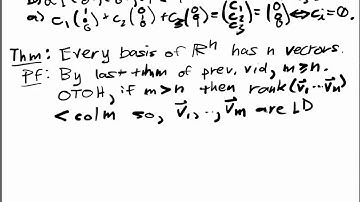 a) c₁(1 0 0) + c₂(0 1 0) + c₃(0 0 1) = (c₁ c₂ c₃) = (0 0 0) ⇔ cᵢ = 0.
Thm: Every basis of ℝⁿ has n vectors.
Pf: By last thm of prev. vid, m ≥ n.
OTOH, if m > n then rank(v⃗₁ ⋯ v⃗ₘ)
< col m so, v⃗₁, .., v⃗ₘ are LD